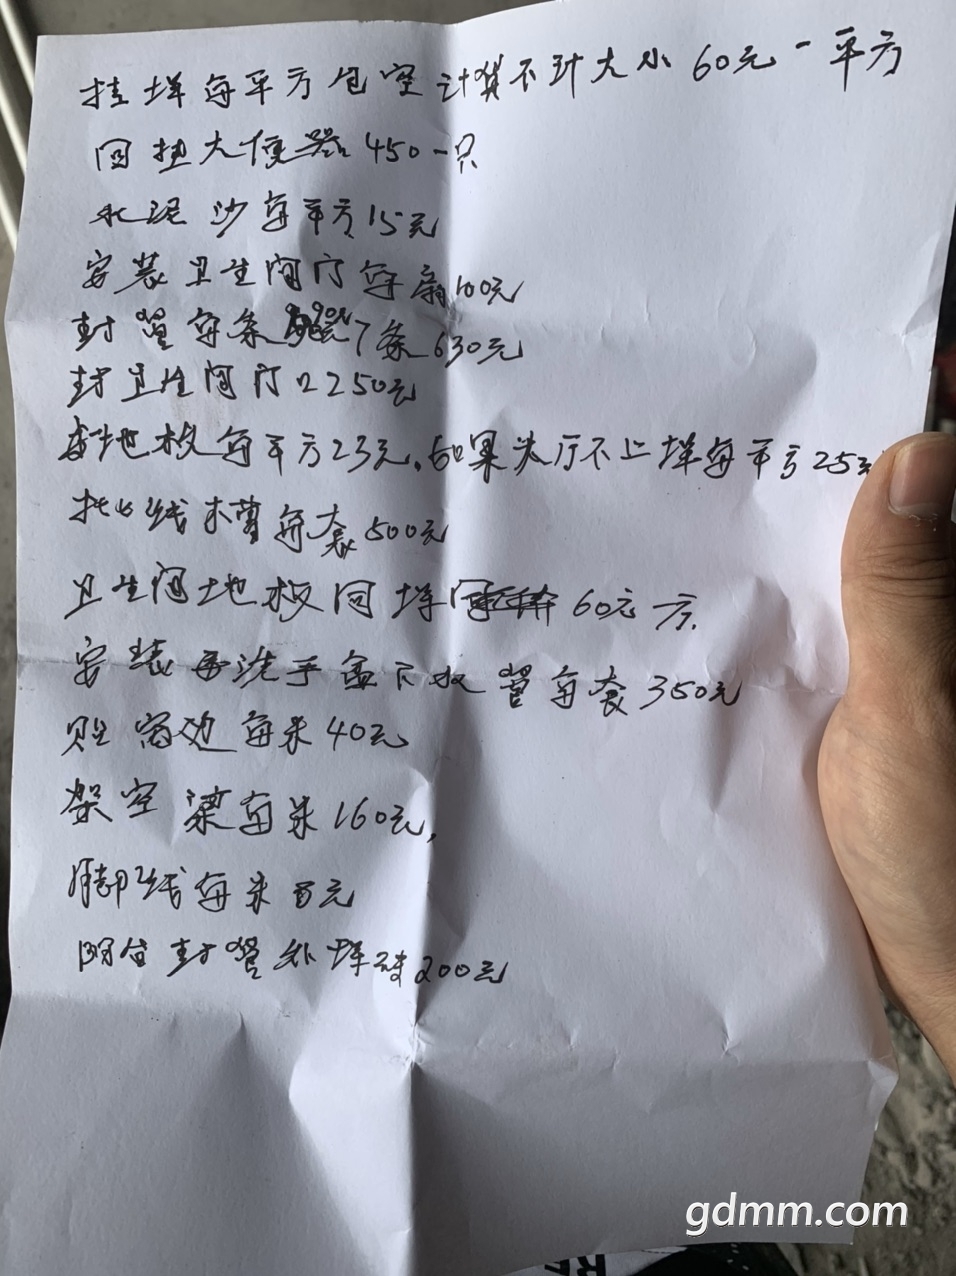 挂墙每平方包空计算不计大小60元一平方
回垫大便器450一只
水泥沙每平方15元
安装卫生间门每扇100元
封管每条90元7条630元
封卫生间门口250元
地板每平方23元.如果大厅不上墙每平方25元
批线木槽每套500元
卫生间地板同墙60元一方.
安装洗手盆下水管每套350元
贴窗边每米40元
架空梁每米160元,
脚线每米8元
阳台封管外墙砖200元
gdmm.com